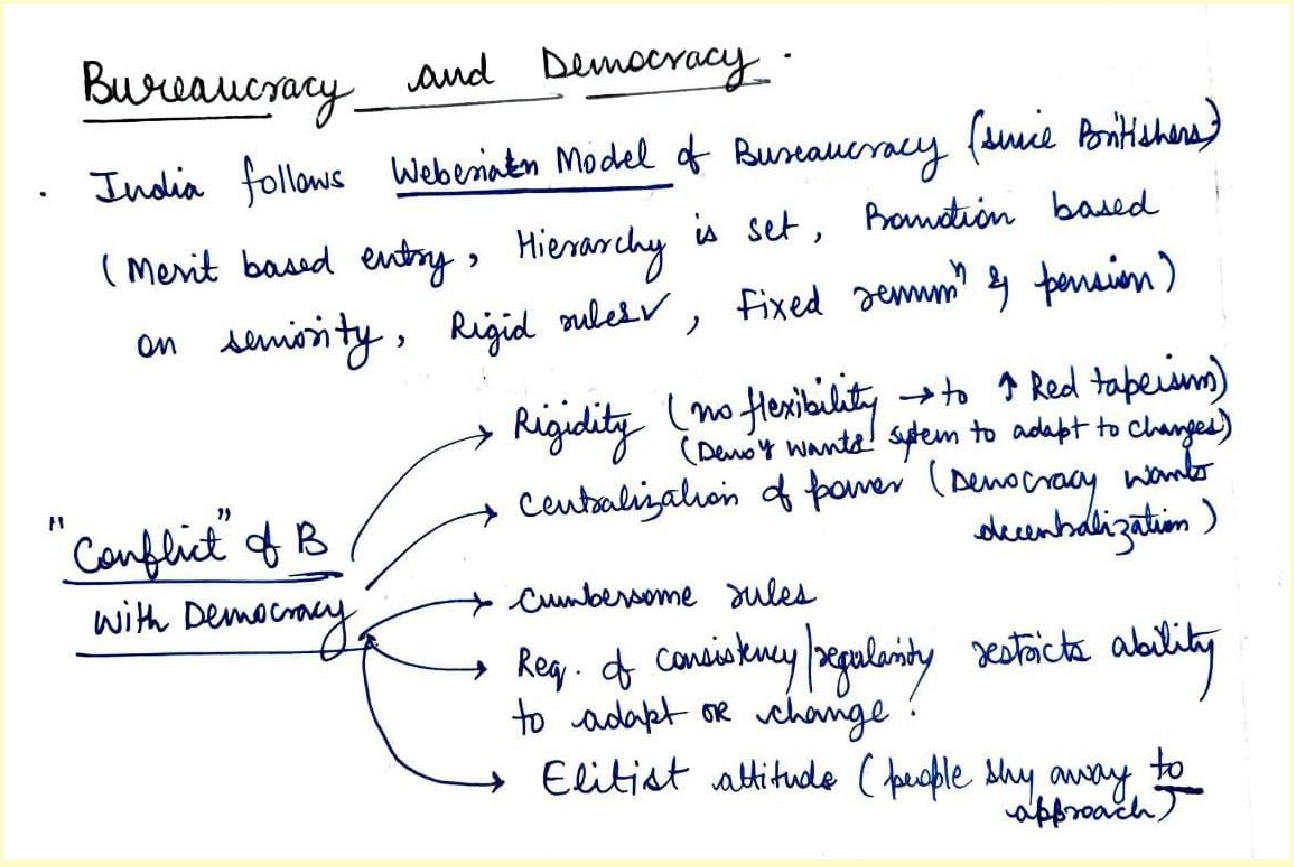 Bureaucracy and Democracy.
. India follows Weberian Model of Bureaucracy (since Britishers)
(Merit based entry, Hierarchy is set, Promotion based
on seniority, Rigid rules✓, Fixed remunⁿ & pension)
→ Rigidity (no flexibility → to ↑ Red tapeism)
(Demoy wants system to adapt to changes)
→ Centralization of power (Democracy wants
decentralization)
"Conflict" of B
with Democracy
→ Cumbersome rules
→ Req. of consistency/regularity restricts ability
to adapt OR change.
→ Elitist attitude (people shy away to
approach)